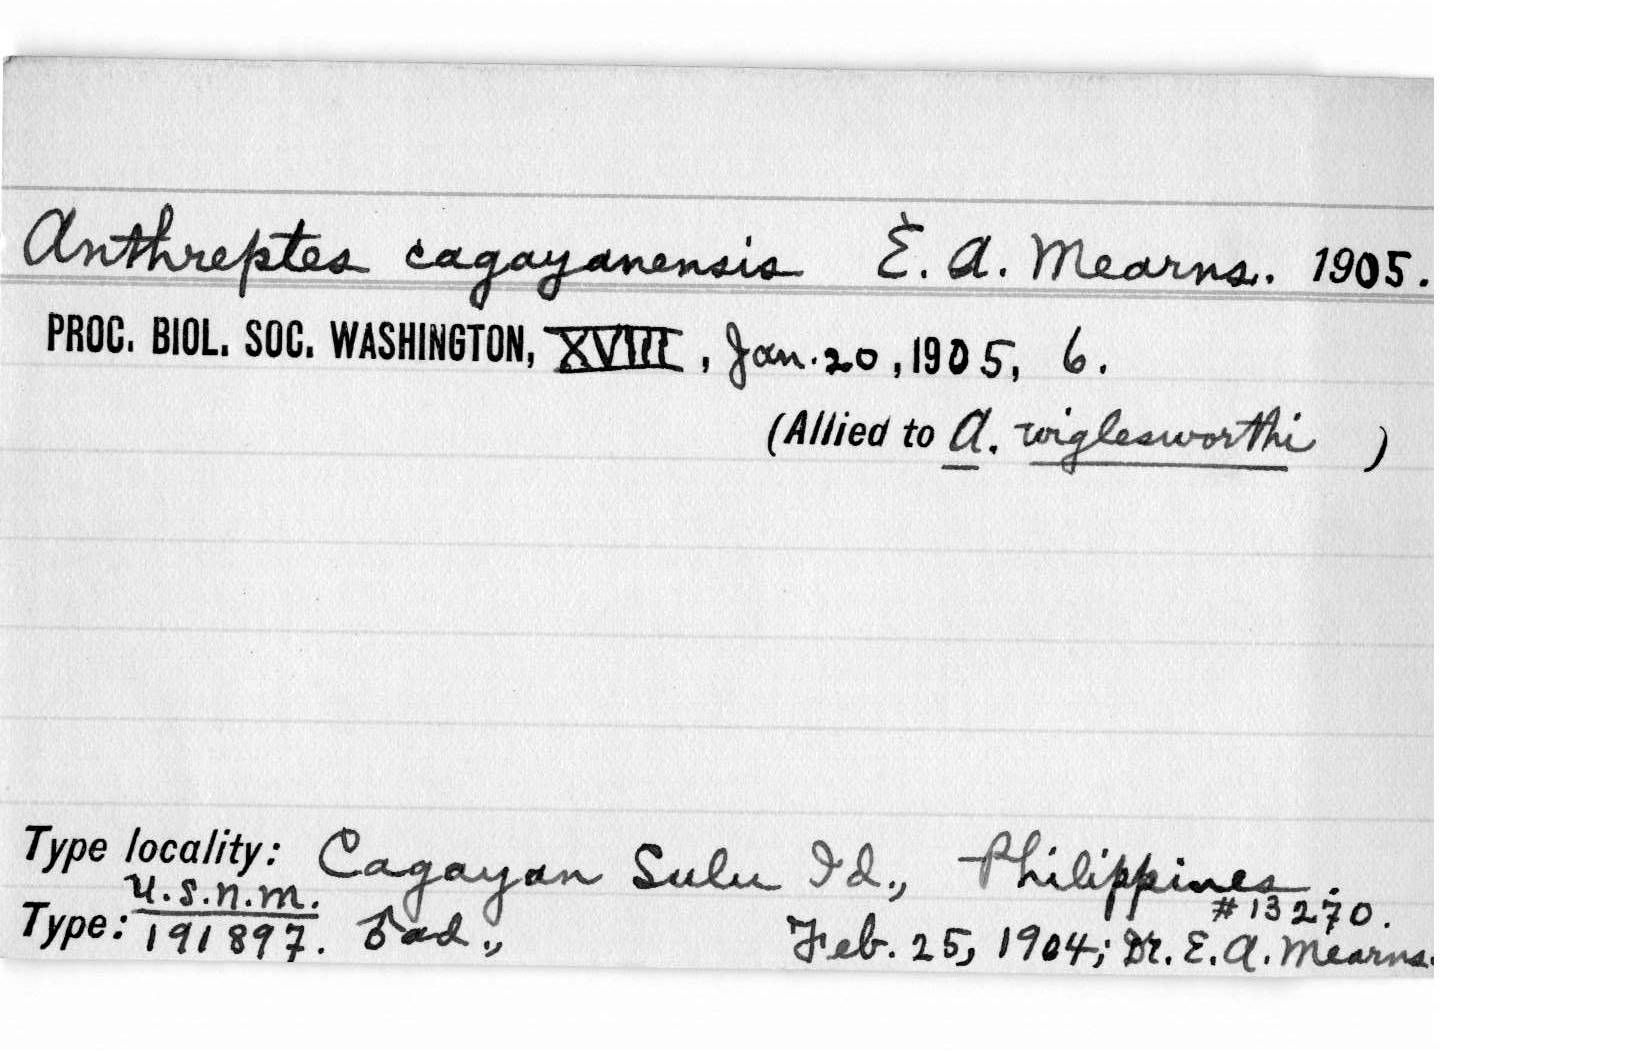 Anthreptes cagayanensis E. A. Mearns. 1905.
PROC. BIOL. SOC. WASHINGTON, XVIII, Jan. 20, 1905, 6.
(Allied to A. wiglesworthi )
Type locality: Cagayan Sulu Id., Philippines.
U.S.N.M. #13270.
Type: 191897. ♂ ad., Feb. 25, 1904; Dr. E. A. Mearns.